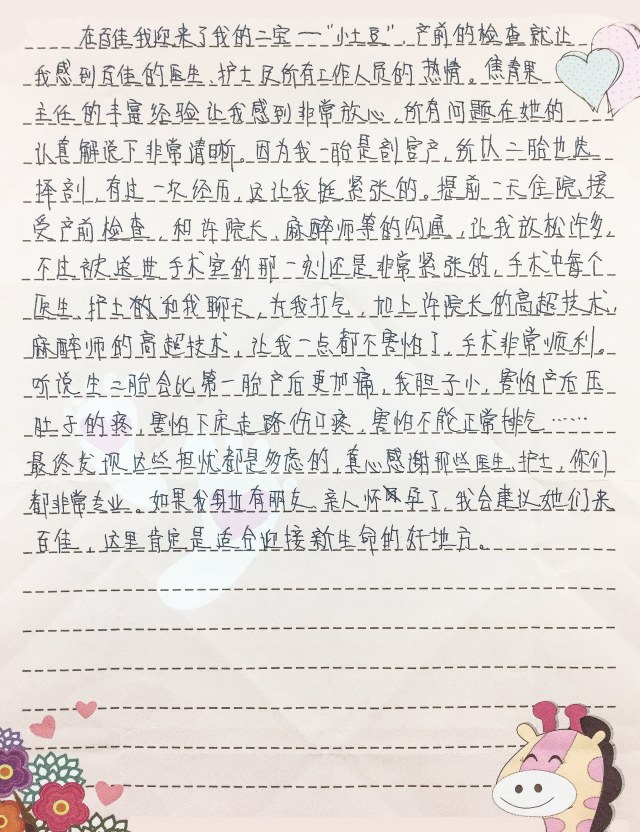 在百佳我迎来了我的二宝—“小土豆”，产前的检查就让
我感到百佳的医生、护士及所有工作人员的热情。焦青果
主任的丰富经验让我感到非常放心，所有问题在她的
认真解说下非常清晰。因为我一胎是剖宫产，所以二胎也选
择剖，有过一次经历，这让我挺紧张的。提前一天住院，接
受产前检查，和许院长、麻醉师等的沟通，让我放松许多，
不过被送进手术室的那一刻还是非常紧张的，手术中每个
医生、护士都和我聊天，为我打气，加上许院长的高超技术，
麻醉师的高超技术，让我一点都不害怕了，手术非常顺利。
听说生二胎会比第一胎产后更加痛，我胆子小，害怕产后压
肚子的疼，害怕下床走路伤口疼，害怕不能正常排气……
最终发现这些担忧都是多虑的，衷心感谢那些医生、护士，你们
都非常专业。如果我身边有朋友、亲人怀孕了，我会建议她们来
百佳，这里肯定是适合迎接新生命的好地方。